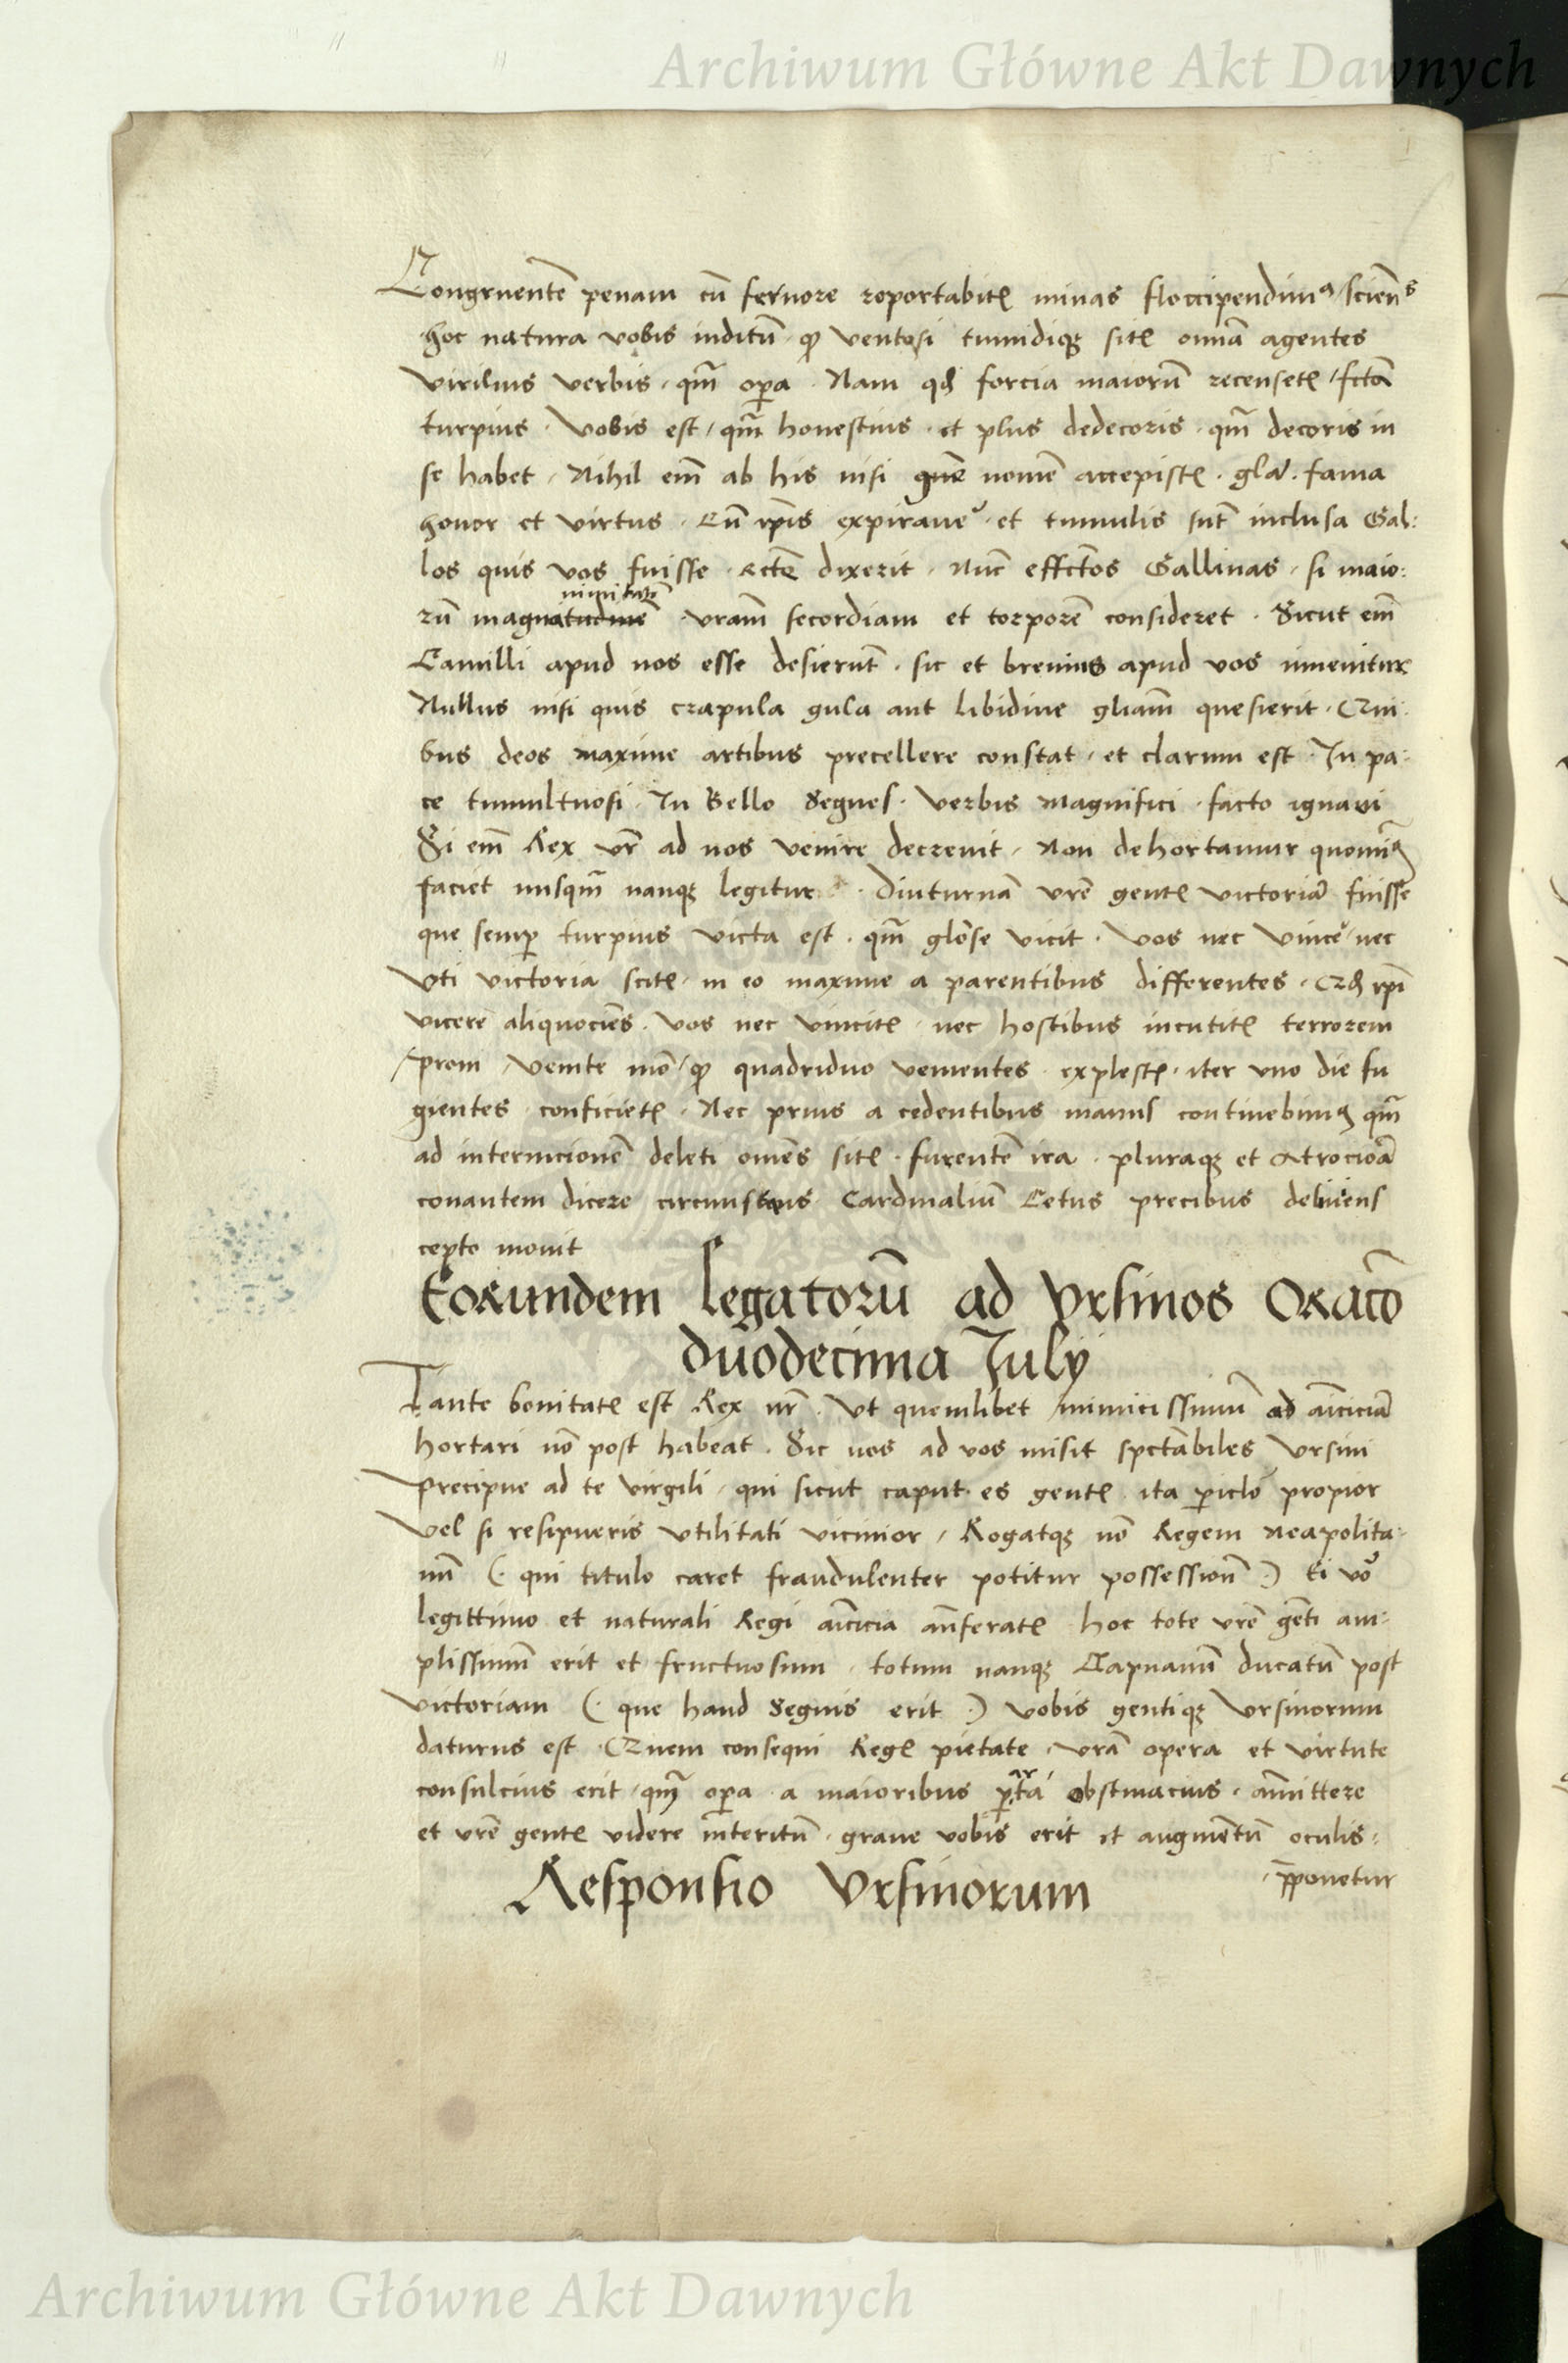 Archiwum Główne Akt Dawnych
Congruentē penam cū feruore reportabitꝭ minas floccipendimꝰ sciens
hoc natura vobis inditū ꝙ ventosi tumidiqꝫ sitꝭ omīa agentes
virilius verbis qm̄ oꝑa Nam qd̓ forcia maiorū recensetꝭ fctā
turpius vobis est qm̄ honestius et plus dedecoris qm̄ decoris in
se habet Nihil em̄ ab his nisi nomē accepistꝭ glā fama
honor et virtus Cū ip̄is expirauē et tumulis sūt inclusa Gal:
los quis vos fuisse recte dixerit nūc effctos Gallinas si maio:
nimitatē
rū magnitudinē vram̄ secordiam et torporē consideret Sicut em̄
Camilli apud nos esse desierūt sic et brenius apud vos inuenitur
Nullus nisi quis crapula gula aut libidine gliam̄ quesierit Qui
bus deos maxime artibus precellere constat et clarum est In pa
ce tumultuosi In Bello Segnes verbis magnifici facto ignaui
Si em̄ Rex vr̄ ad nos venire decreuit Non dehortamur quominꝰ
faciet nusqm̄ nanqꝫ legitur Diuturnā vrē gentꝭ victoriā fuisse
que semꝑ turpius victa est qm̄ glōse vicit vos nec vincē nec
vti victoria scitꝭ in eo maxime a parentibus differentes Qd̓ ip̄i
vicere aliquociēs vos nec vincitꝭ nec hostibus incutitꝭ terrorem
prom venite mō ꝙ quadriduo venientes explestꝭ iter vno die fu
gientes conficietꝭ Nec prius a cedentibus manus continebimꝰ qm̄
ad internicionē deleti omēs sitꝭ furentē ira pluraqꝫ et atrociōa
conantem dicere circumstans Cardinalium Cetus precibus deliniens
cepto monit
Eorundem legatorū ad Vrsinos Oracō
duodecima July
Tante bonitatꝭ est Rex nr̄ Vt quemlibet inimicissimū ad amīciciā
hortari nō post habeat Sic nos ad vos misit spctabiles Vrsini
Precipue ad te virgili qui sicut caput es gentꝭ ita ꝑiclō propior
Vel si resipueris vtilitati vicinior Rogatqꝫ nō Regem neapolita
nū ( qui titulo caret fraudulenter potitur possessionū ) Ei vo
legittimo et naturali Regi amīcicia anferatꝭ hoc tote vrē gēti am
plissimū erit et fructuosum totum nanqꝫ Capuanū ducatū post
victoriam ( que haud Segnis erit ) vobis gentiqꝫ Vrsinorum
daturus est Quem consequi Regꝭ pietate vrā opera et virtute
consulcius erit qm̄ oꝑa a maioribus ꝑta obstinacius amittere
et vrē gentꝭ videre interitū graue vobis erit et augmentū oculis
p̄ponetur
Responsio Vrsinorum
Archiwum Główne Akt Dawnych